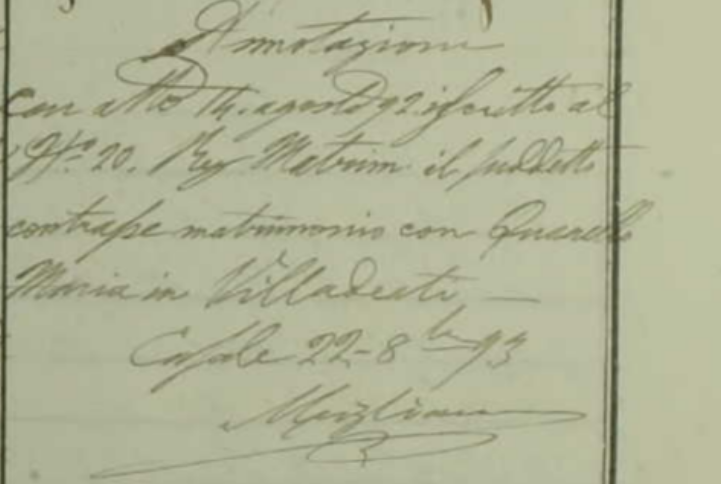 Annotazione
con atto 14. agosto 92 iscritto al
N.º 20. Reg Matrim. il suddetto
contrasse matrimonio con Quarello
Maria in Villadeati —
Casale 22-8bre 93